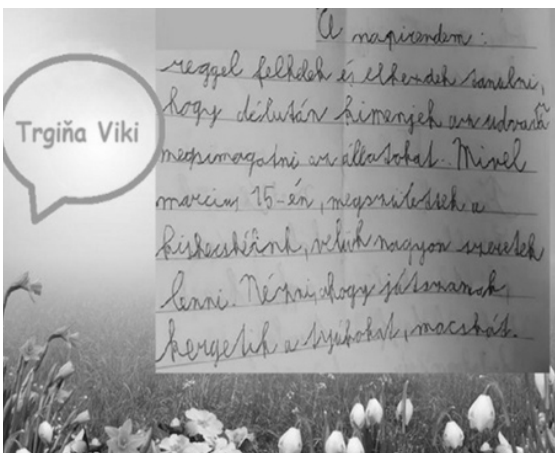 Trgiňa Viki
A napirendem:
reggel felkelek és elkezdek tanulni,
hogy délután kimenjek az udvarra
megsimogatni az állatokat. Mivel
marcius 15-én, megszülettek a
kiskecskéink, velük nagyon szeretek
lenni. Nézni, ahogy játszanak,
kergetik a tyúkokat, macskát.